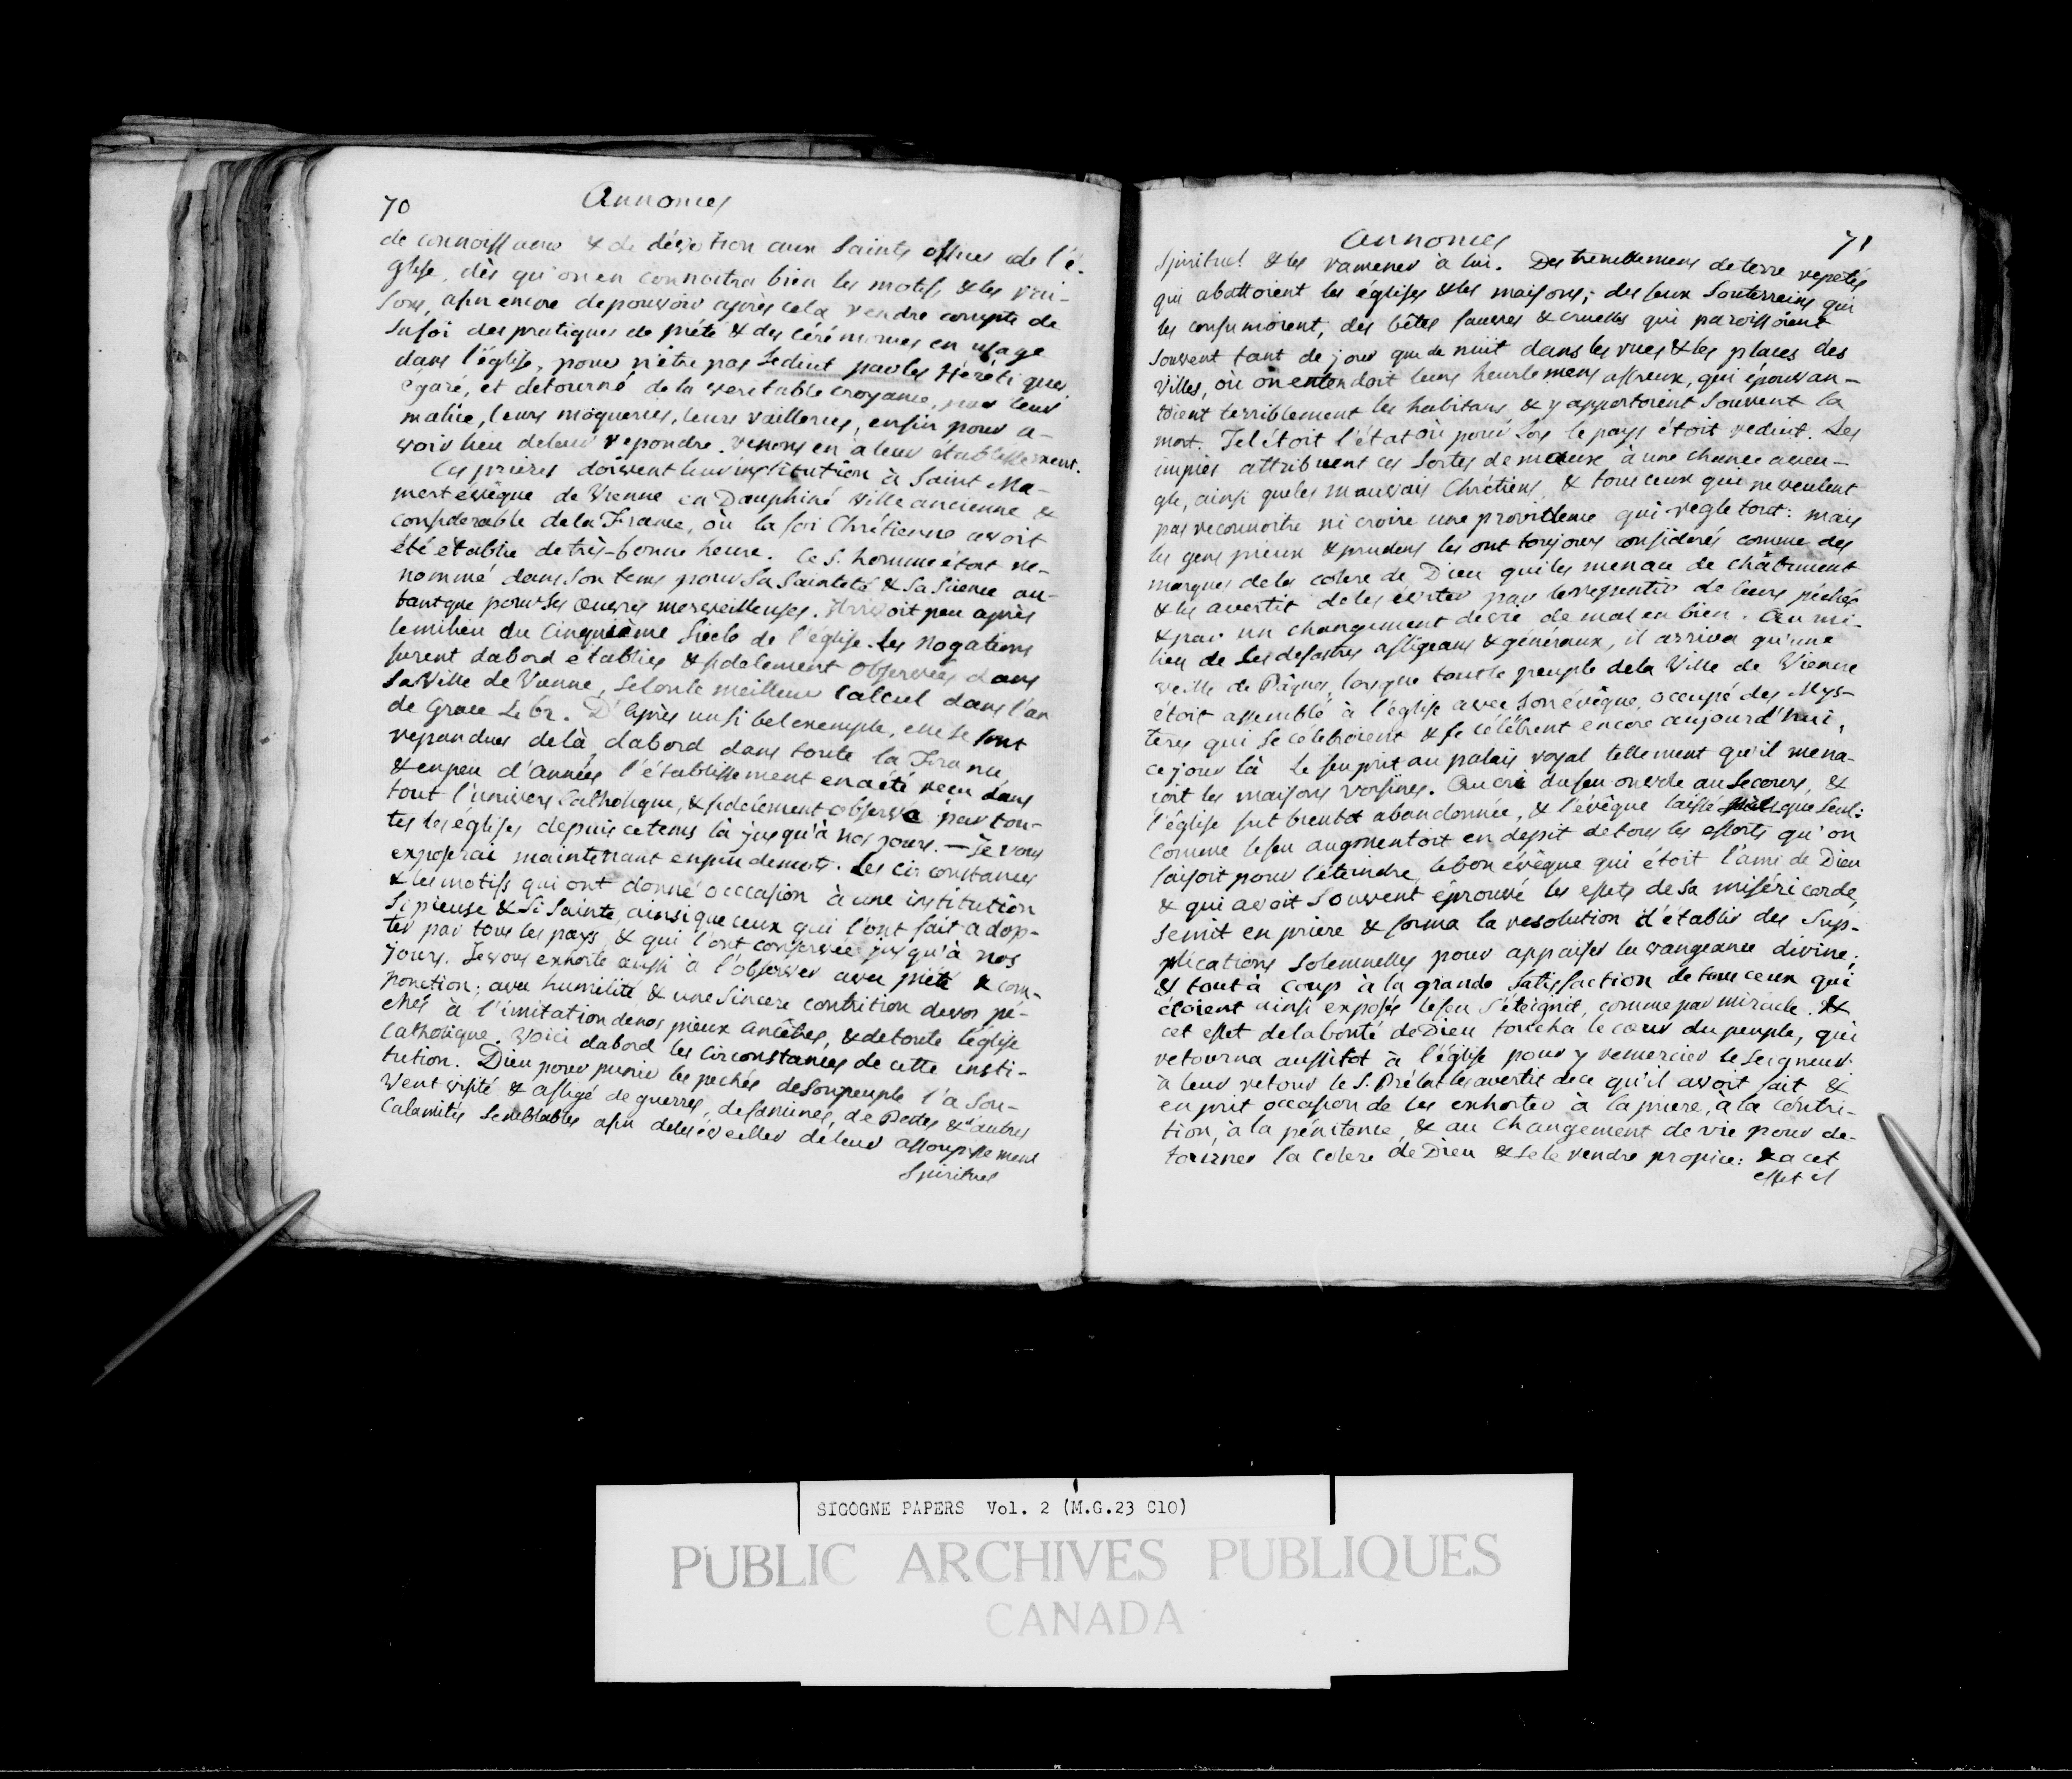 70
Annonces
de connoissance & de dévotion aux saints offices de l'é-
glise, dès qu'on en connoitra bien les motifs & les rai-
sons, afin encore de pouvoir après cela rendre compte de
sa foi des pratiques de piété & des cérémonies en usage
dans l'église, pour n'être pas seduit par les Hérétiques
egaré, et detourné de la veritable croyance, par leur
malice, leurs moqueries, leurs railleries, enfin pour a-
voir lieu de leur repondre. venons en à leur établissement.
Ces prières doivent leur institution à Saint Ma-
mert évêque de Vienne en Dauphiné ville ancienne &
considerable de la France, où la foi Chrétienne avoit
été établie de très-bonne heure. Ce S. homme étoit re-
nommé dans son tems pour sa Sainteté & sa Science au-
tant que pour ses œuvres merveilleuses. Il vivoit peu après
le milieu du Cinquième Siecle de l'église. Les Rogations
furent dabord établies & fidelement observées dans
sa Ville de Vienne, selon le meilleur Calcul dans l'an
de Grace 462. D'après un si bel exemple, elle se sont
repandues delà, dabord dans toute la France,
& en peu d'Années l'établissement en a été reçu dans
tout l'univers Catholique, & fidelement observé par tou-
tes les églises depuis ce tems là jusqu'à nos jours. — Je vous
exposerai maintenant en peu de mots. Les circonstances
& les motifs qui ont donné occcasion à une institution
si pieuse & si sainte, ainsi que ceux qui l'ont fait adop-
ter par tous les pays, & qui l'ont conservée jusqu'à nos
jours. Je vous exhorte aussi à l'observer avec piété & com-
ponction; avec humilité & une sincere contrition de vos pé-
chés à l'imitation de nos pieux Ancêtres, & de toute l'église
Catholique. Voici dabord les circonstances de cette insti-
tution. Dieu pour punir les pechés de son peuple l'a sou-
vent visité & afligé de guerres, de famines, de Pestes & d'autres
Calamités semblables afin de les éveiller de leur assoupissement
Spirituel
Annonces
71
Spirituel & les ramener à lui. Des tremblemens de terre repetés
qui abattoient les églises & les maisons; des feux souterrains qui
les consumoient, des bêtes fauves & cruelles qui paroissoient
souvent tant de jour que de nuit dans les rues & les places des
villes, où on entendoit leurs heurlemens affreux, qui épouvan-
toient terriblement les habitans & y apportoient souvent la
mort. Tel étoit l'état où pour lors le pays étoit reduit. Les
impies attribuent ces sortes de maux à une chance aveu-
gle, ainsi que les mauvais Chrétiens, & tous ceux qui ne veulent
pas reconnoitre ni croire une providence qui regle tout: mais
les gens pieux & prudens les ont toujours considerés comme des
marques de la colere de Dieu qui les menace de châtiment
& les avertit de les eviter par le repentir de leurs péchés
& par un changement de vie de mal en bien. Au mi-
lieu de ses desastres afligeans & généraux, il arriva qu'une
veille de Pâques, lorsque tout le peuple de la Ville de Vienne
étoit assemblé à l'église avec son évêque, occupé des Mys-
teres qui se célébroient & se célébrent encore aujourd'hui,
ce jour là le feu prit au palais royal tellement qu'il mena-
çoit les maisons voisines. Au cri du feu on vole au secours, &
l'église fut bientôt abandonnée, & l'évêque laissé presque seul:
comme le feu augmentoit en depit de tous les efforts qu'on
faisoit pour l'éteindre, le bon évêque qui étoit l'ami de Dieu
& qui avoit souvent éprouvé les effets de sa miséricorde,
se mit en priere & forma la resolution d'établir des Sup-
plications solemnelles pour appaiser la vangeance divine;
& tout à coup à la grande satisfaction de tous ceux qui
étoient ainsi exposés le feu s'éteignit, comme par miracle. &
cet effet de la bonté de Dieu toucha le cœur du peuple, qui
retourna aussitot à l'église pour y remercier le Seigneur.
à leur retour le S. Prélat les avertit de ce qu'il avoit fait &
en prit occasion de les exhorter à la priere, à la contri-
tion, à la pénitence, & au changement de vie pour de-
tourner la colere de Dieu & se le rendre propice: & a cet
effet il
SICOGNE PAPERS Vol. 2 (M.G.23 C10)
PUBLIC ARCHIVES PUBLIQUES
CANADA